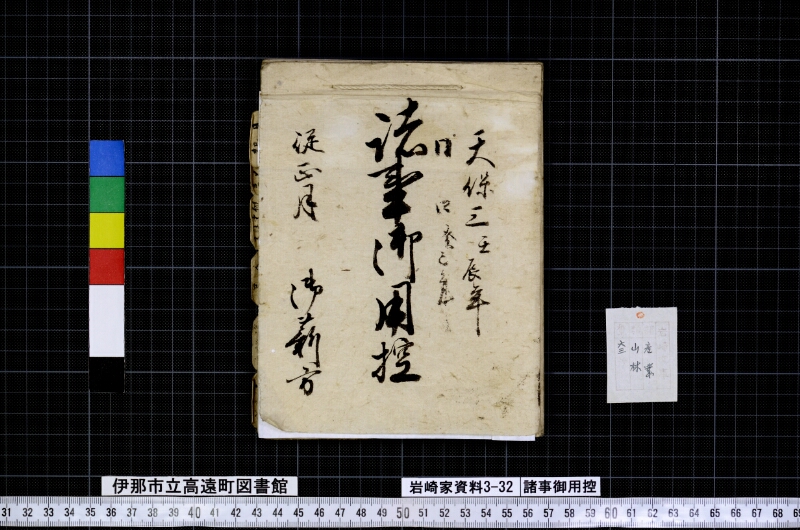 天保三壬辰年
日
四癸巳
諸事御用控
従正月
御薪方
産業
山林
六三
伊那市立高遠町図書館
岩崎家資料3-32
諸事御用控
31 32 33 34 35 36 37 38 39 40 41 42 43 44 45 46 47 48 49 50 51 52 53 54 55 56 57 58 59 60 61 62 63 64 65 66 67 68 69